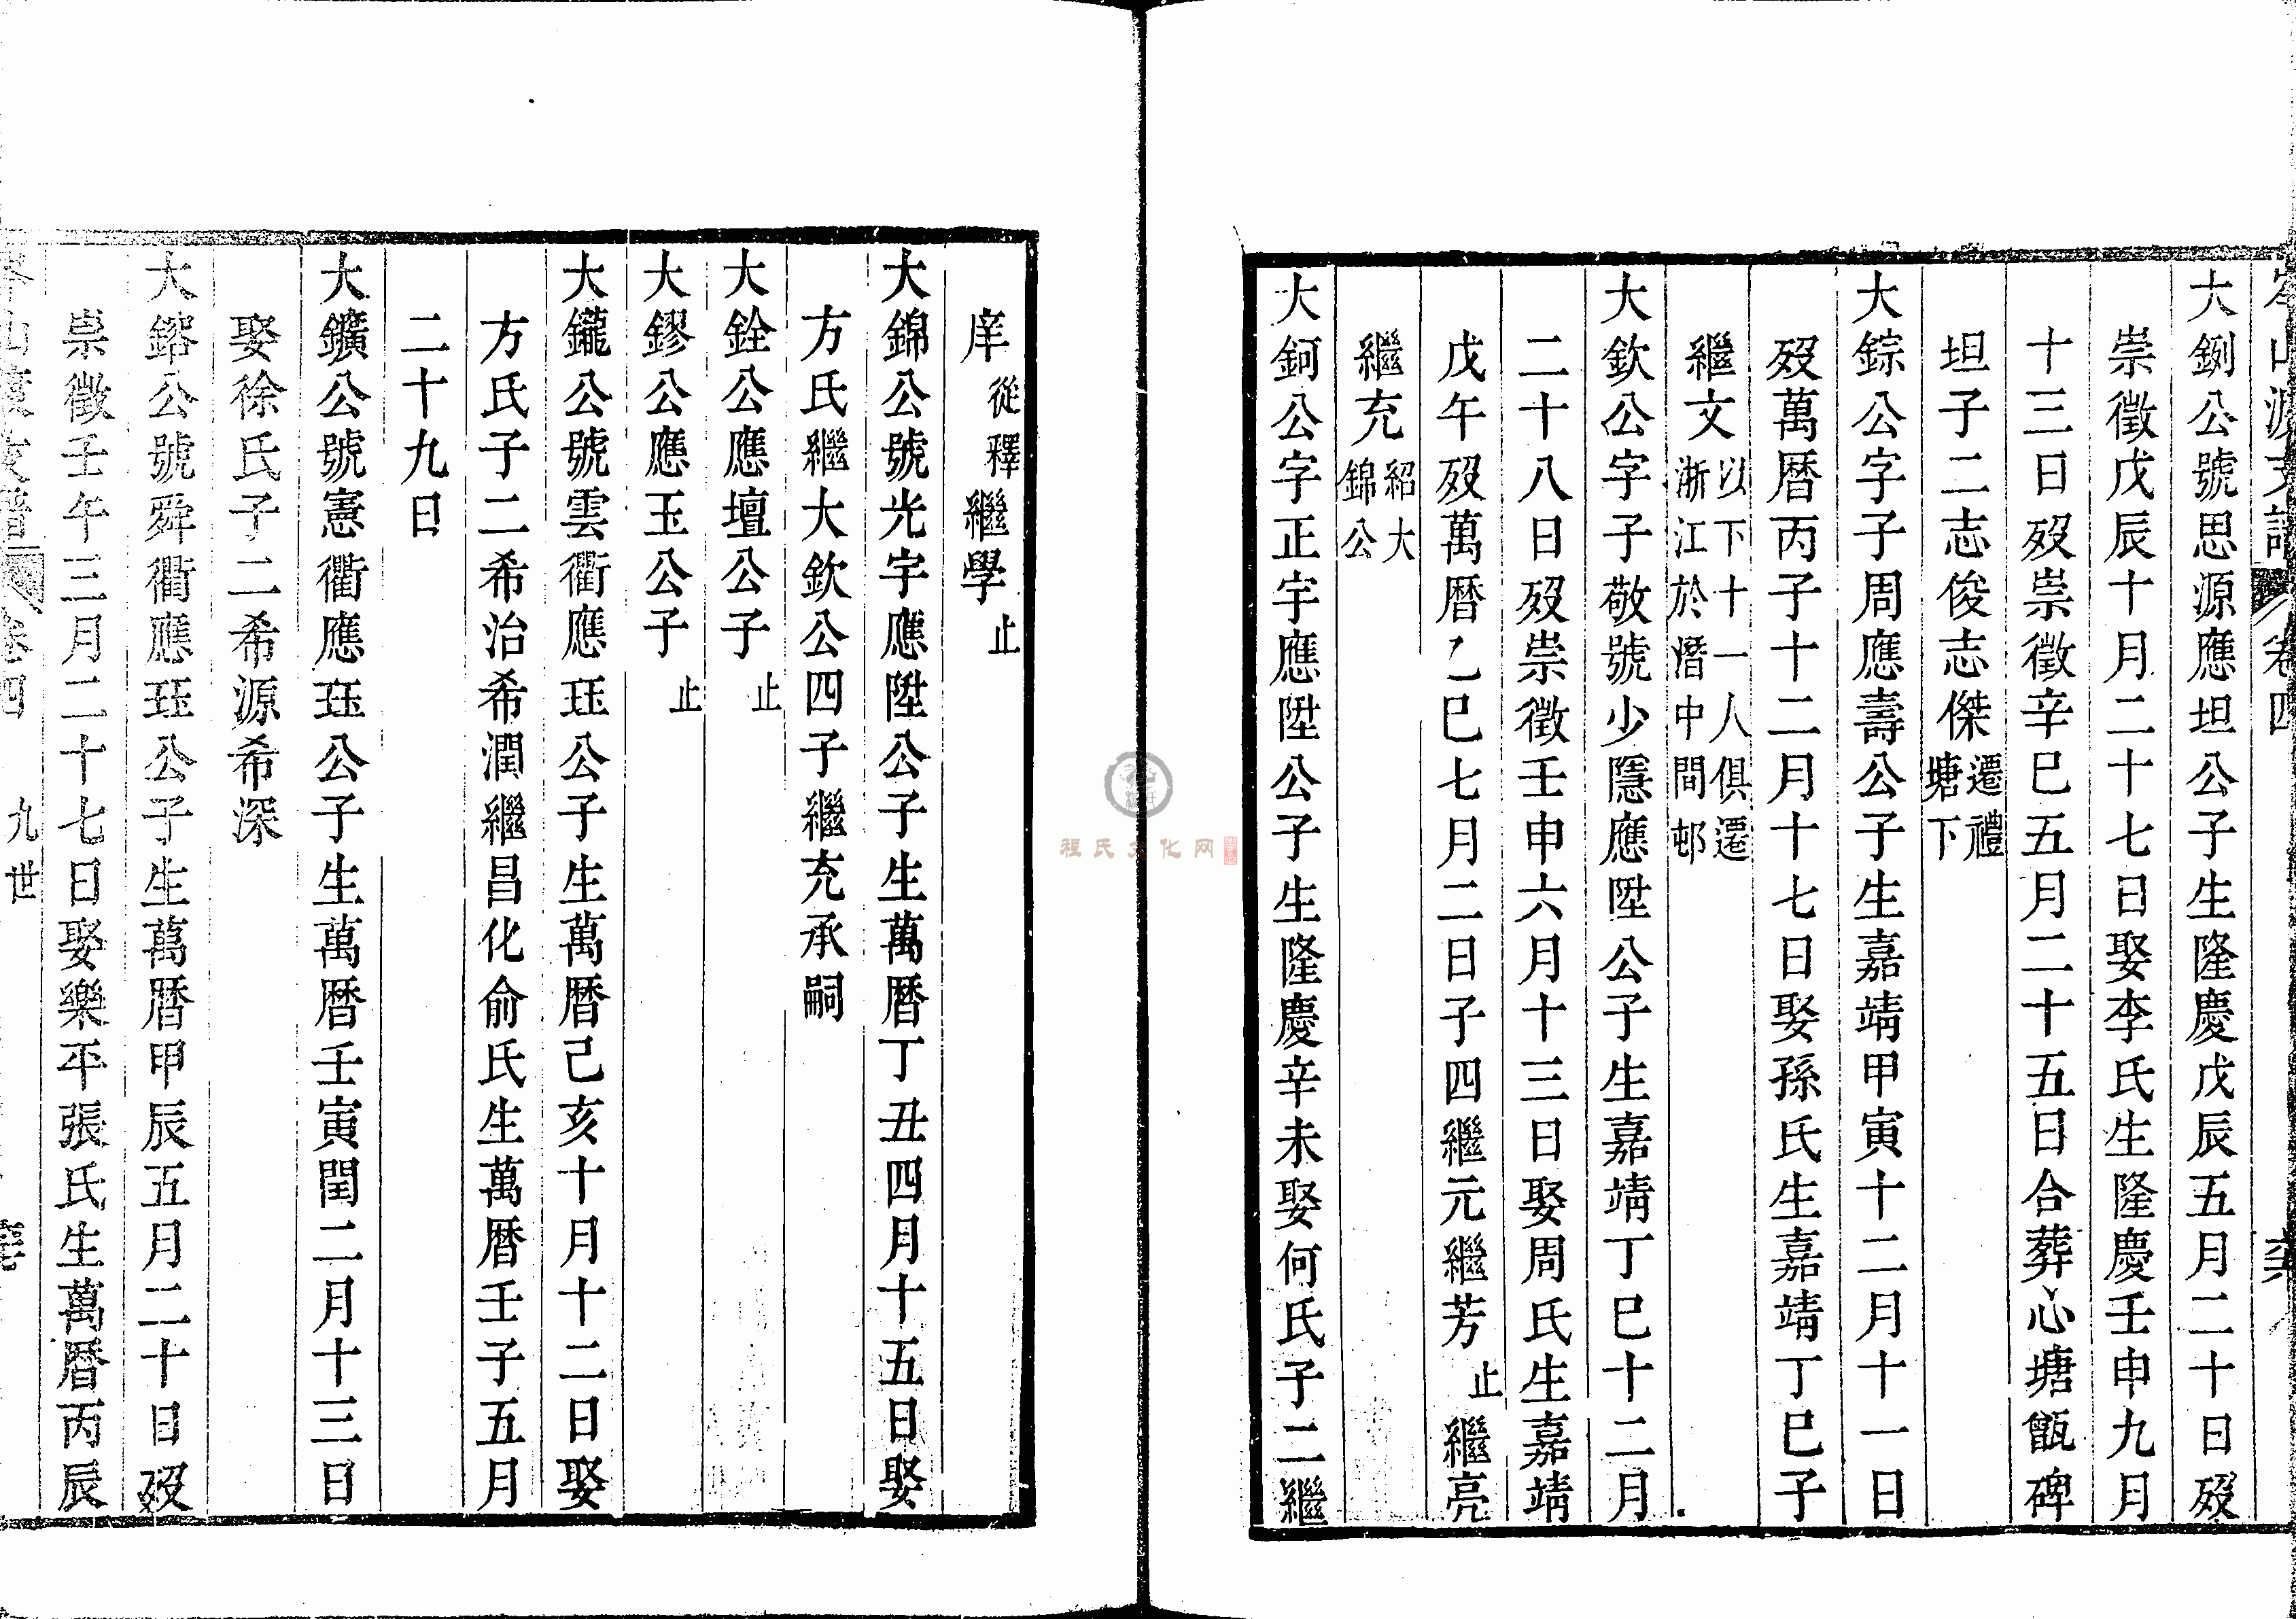 岑山源支譜 卷四
大鉶公號思源應坦公子生隆慶戊辰五月二十日歿
崇徵戊辰十月二十七日娶李氏生隆慶壬申九月
十三日歿崇徵辛巳五月二十五日合葬心塘甑碑
坦子二志俊志傑遷禮塘下
大錝公字子周應壽公子生嘉靖甲寅十二月十一日
歿萬曆丙子十二月十七日娶孫氏生嘉靖丁巳子
繼文以下十一人俱遷浙江於潛中間邨
大欽公字子敬號少隱應陞公子生嘉靖丁巳十二月
二十八日歿崇徵壬申六月十三日娶周氏生嘉靖
戊午歿萬曆乙巳七月二日子四繼元繼芳止繼亮
繼充紹大錦公
大鈳公字正宇應陞公子生隆慶辛未娶何氏子二繼
庠從釋繼學止
大錦公號光宇應陞公子生萬曆丁丑四月十五日娶
方氏繼大欽公四子繼充承嗣
大銓公應壇公子止
大鏐公應玉公子止
大鑨公號雲衢應珏公子生萬曆己亥十月十二日娶
方氏子二希治希潤繼昌化俞氏生萬曆壬子五月
二十九日
大鑛公號憲衢應珏公子生萬曆壬寅閏二月十三日
娶徐氏子二希源希深
大鎔公號舜衢應珏公子生萬曆甲辰五月二十日歿
崇徵壬午三月二十七日娶樂平張氏生萬曆丙辰
卷四 九世
程氏文化网